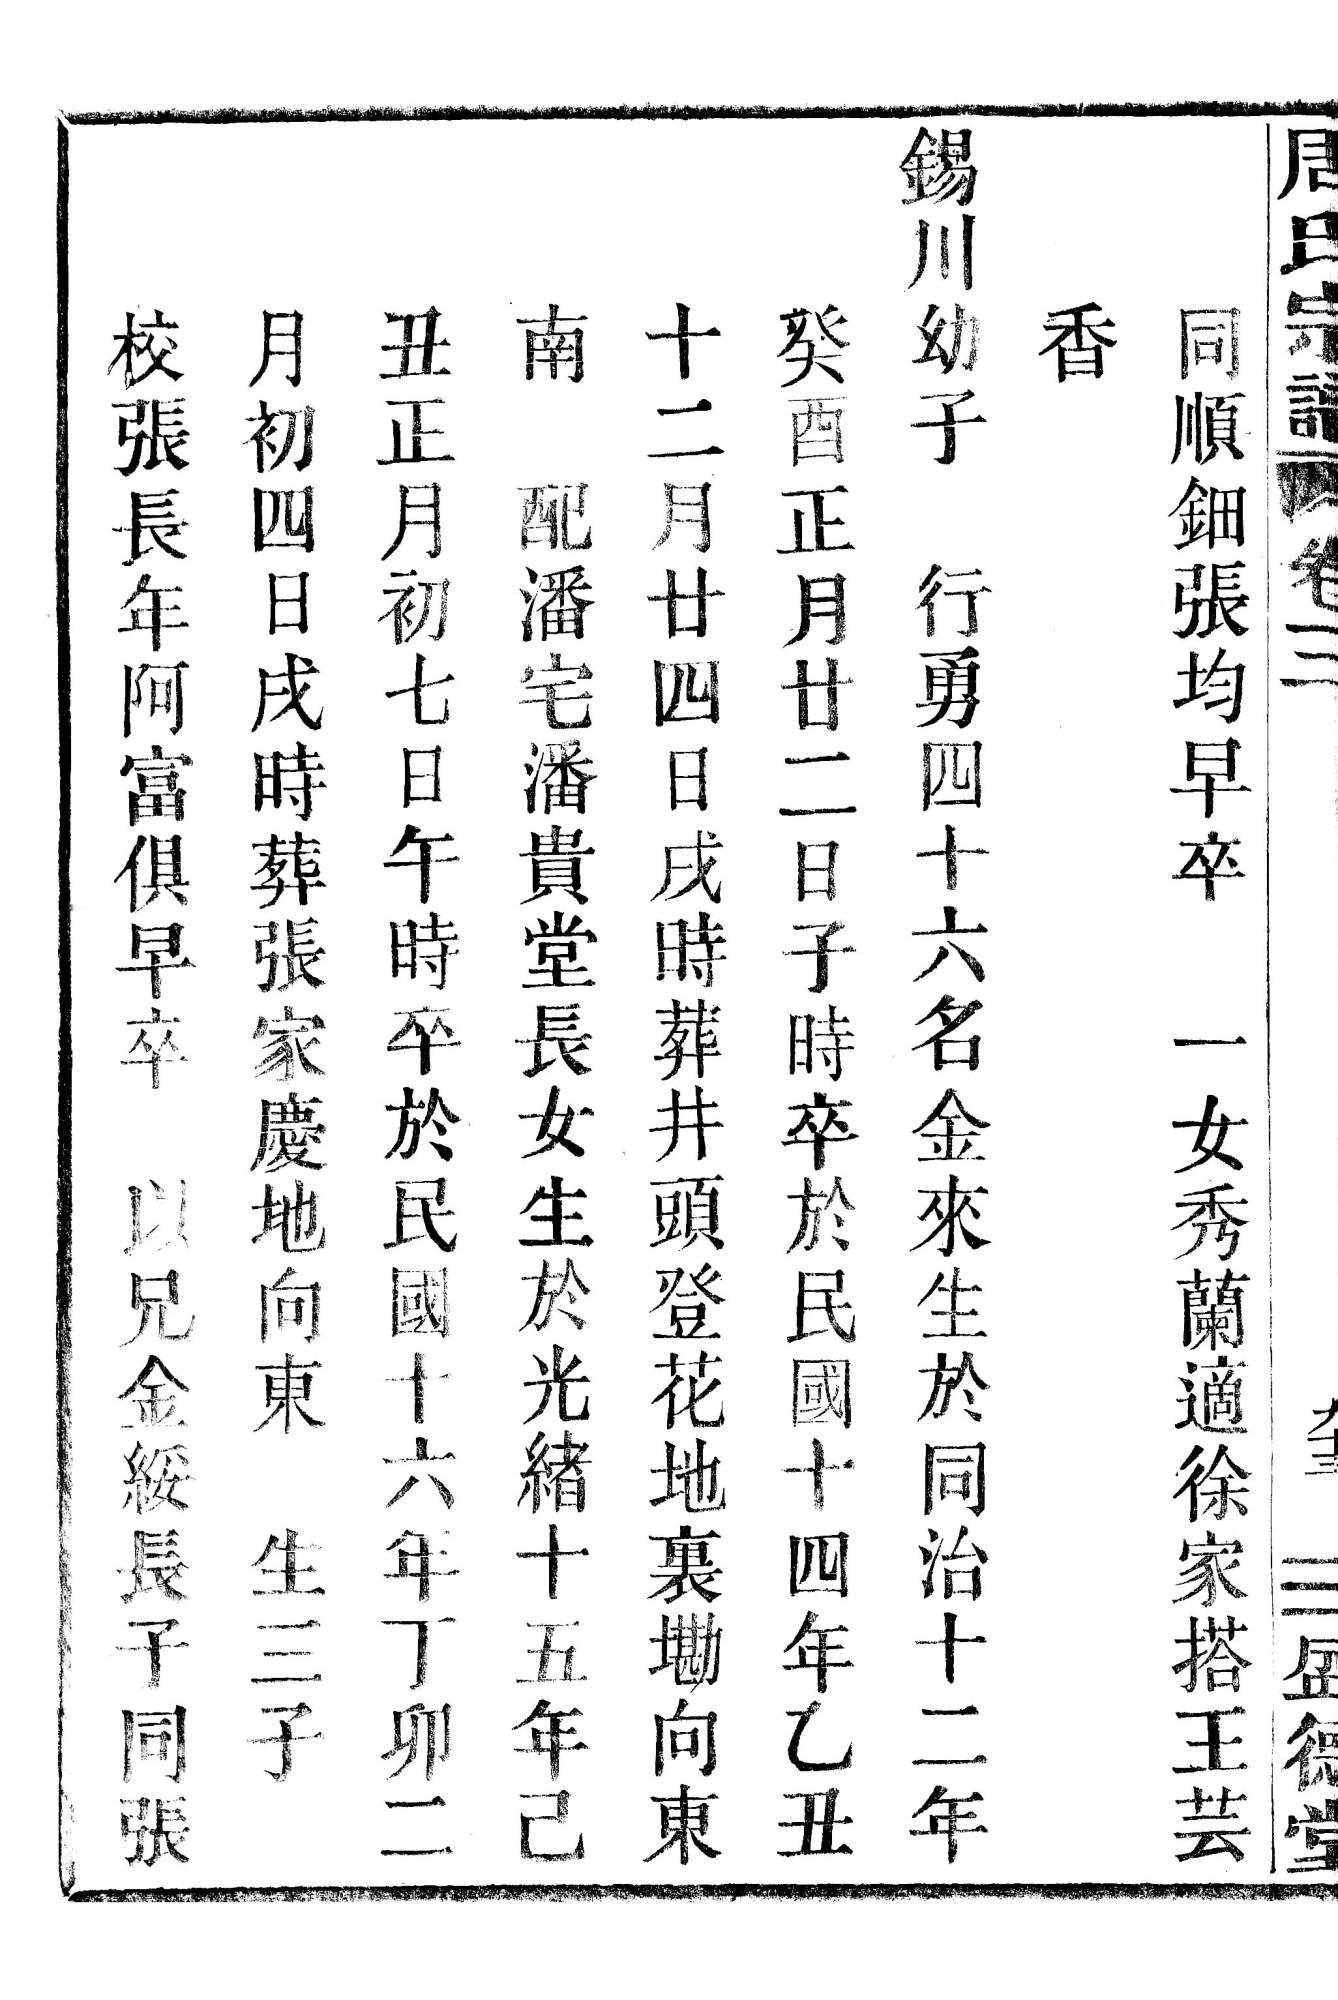 周氏宗譜 卷三 盛德堂
同順鈿張均早卒 一女秀蘭適徐家搭王芸
香
錫川幼子 行勇四十六名金來生於同治十二年
癸酉正月廿二日子時卒於民國十四年乙丑
十二月廿四日戌時葬井頭登花地裏墈向東
南 配潘宅潘貴堂長女生於光緒十五年己
丑正月初七日午時卒於民國十六年丁卯二
月初四日戌時葬張家慶地向東 生三子
校張長年阿富俱早卒 以兄金綏長子同張